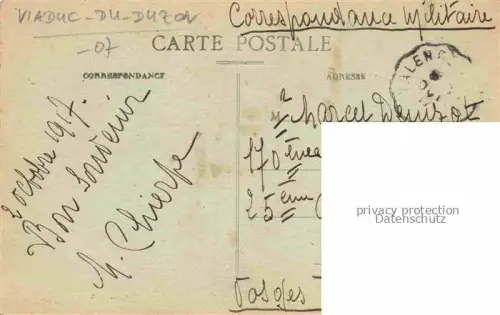 VIADUC-DU-DUZON
-07
Correspondance Militaire
CARTE POSTALE
CORRESPONDANCE
ADRESSE
VALENC
2 octobre 1917
Bon Souvenir
M. Chierpe
Mr Marcel
170 ème
25 ème
Vosges
privacy protection
Datenschutz